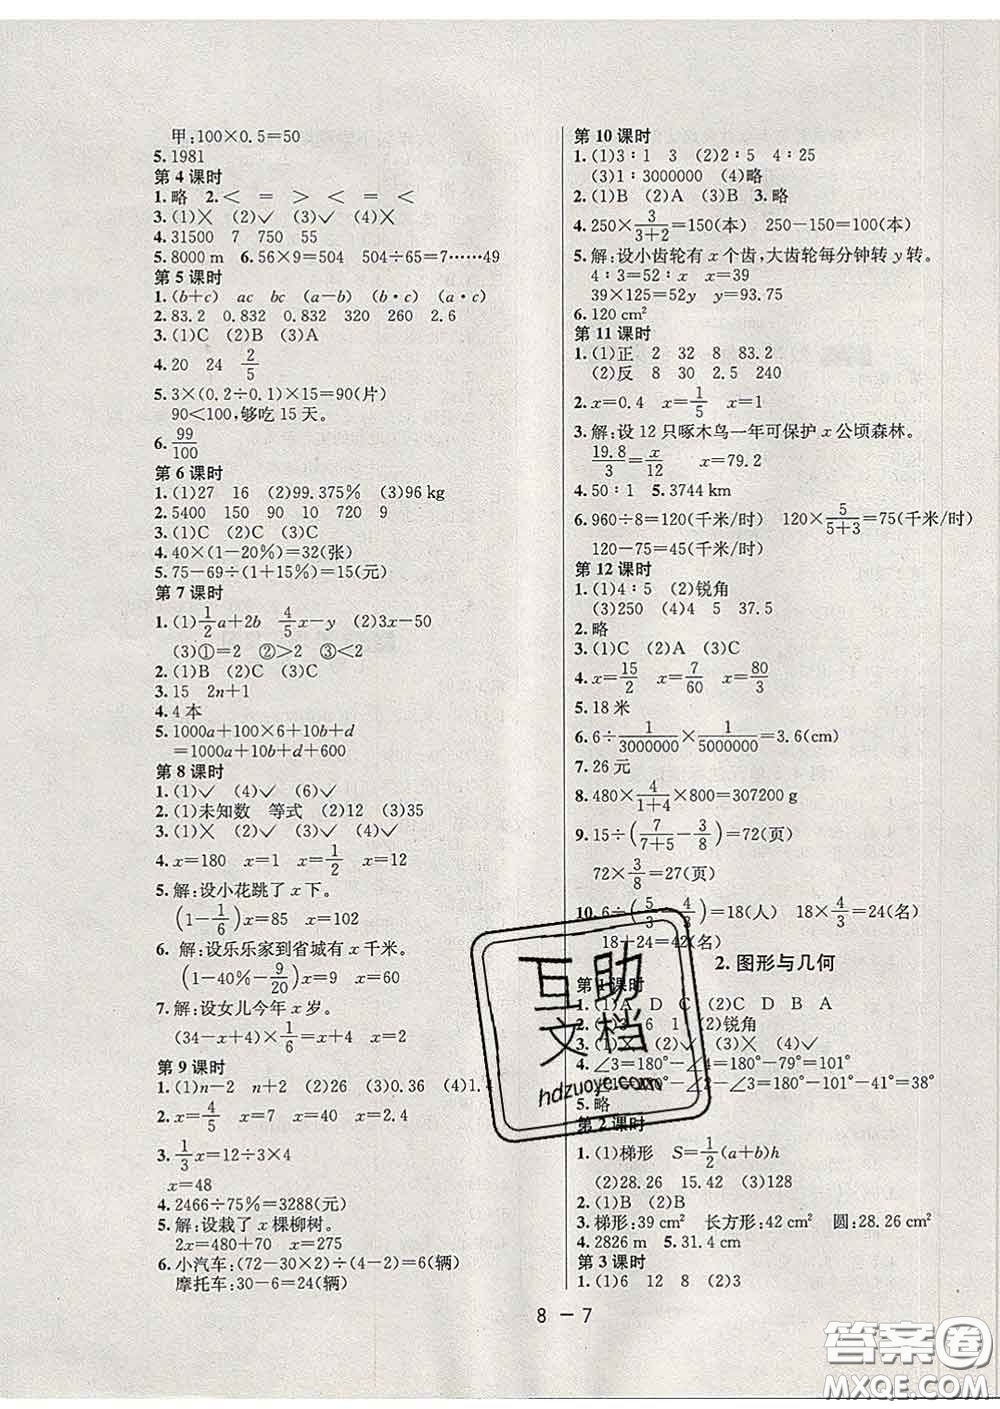 甲:100×0.5=50
5.1981
第 4 课时
1.略 2.< = > < = <
3.(1)× (2)✓ (3)✓ (4)×
4.31500 7 750 55
5.8000 m 6.56×9=504 504÷65=7……49
第 5 课时
1.(b+c) ac bc (a-b) (b·c) (a·c)
2.83.2 0.832 0.832 320 260 2.6
3.(1)C (2)B (3)A
4.20 24 2/5
5.3×(0.2÷0.1)×15=90(片)
90<100,够吃 15 天。
6.99/100
第 6 课时
1.(1)27 16 (2)99.375% (3)96 kg
2.5400 150 90 10 720 9
3.(1)C (2)C (3)C
4.40×(1-20%)=32(张)
5.75-69÷(1+15%)=15(元)
第 7 课时
1.(1)1/2a+2b 4/5x-y (2)3x-50
(3)①=2 ②>2 ③<2
2.(1)B (2)C (3)C
3.15 2n+1
4.4 本
5.1000a+100×6+10b+d
=1000a+10b+d+600
第 8 课时
1.(1)✓ (4)✓ (6)✓
2.(1)未知数 等式 (2)12 (3)35
3.(1)× (2)✓ (3)✓ (4)✓
4.x=180 x=1 x=1/2 x=12
5.解:设小花跳了 x 下。
(1-1/6)x=85 x=102
6. 解:设乐乐家到省城有 x 千米。
(1-40%-9/20)x=9 x=60
7.解:设女儿今年 x 岁。
(34-x+4)×1/6=x+4 x=2
第 9 课时
1.(1)n-2 n+2 (2)26 (3)0.36 (4)1.
2.x=4/5 x=7 x=40 x=2.4
3.1/3x=12÷3×4
x=48
4.2466÷75%=3288(元)
5.解:设栽了 x 棵柳树。
2x=480+70 x=275
6.小汽车:(72-30×2)÷(4-2)=6(辆)
摩托车:30-6=24(辆)
第 10 课时
1.(1)3∶1 3 (2)2∶5 4∶25
(3)1∶3000000 (4)略
2.(1)B (2)A (3)B 3.略
4.250×3/(3+2)=150(本) 250-150=100(本)
5.解:设小齿轮有 x 个齿,大齿轮每分钟转 y 转。
4∶3=52∶x x=39
39×125=52y y=93.75
6.120 cm²
第 11 课时
1.(1)正 2 32 8 83.2
(2)反 8 30 2.5 240
2.x=0.4 x=1/5 x=1
3.解:设 12 只啄木鸟一年可保护 x 公顷森林。
19.8/3=x/12 x=79.2
4.50∶1 5.3744 km
6.960÷8=120(千米/时) 120×5/(5+3)=75(千米/时)
120-75=45(千米/时)
第 12 课时
1.(1)4∶5 (2)锐角
(3)250 (4)4 5 37.5
2.略
3.(1)C (2)A (3)C
4.x=15/2 x=7/60 x=80/3
5.18 米
6.6÷1/3000000×1/5000000=3.6(cm)
7.26 元
8.480×4/(1+4)×800=307200 g
9.15÷(7/(7+5)-3/8)=72(页)
72×3/8=27(页)
10.6÷(5/3-4/3)=18(人) 18×4/3=24(名)
18+24=42(名)
2. 图形与几何
第 1 课时
1.(1)A D C (2)C D B A
2.(1)3 6 1 (2)锐角
3.(1)× (2)✓ (3)✓ (4)✓
4.∠3=180°-∠4=180°-79°=101°
-∠2-∠3=180°-101°-41°=38°
5.略
第 2 课时
1.(1)梯形 S=1/2(a+b)h
(2)28.26 15.42 (3)128
2.(1)B (2)B
3.梯形:39 cm² 长方形:42 cm² 圆:28.26 cm²
4.2826 m 5.31.4 cm
第 3 课时
1.(1)6 12 8 (2)3
8-7
互助文档
hdzuoye.com
答案圈
MXQE.COM